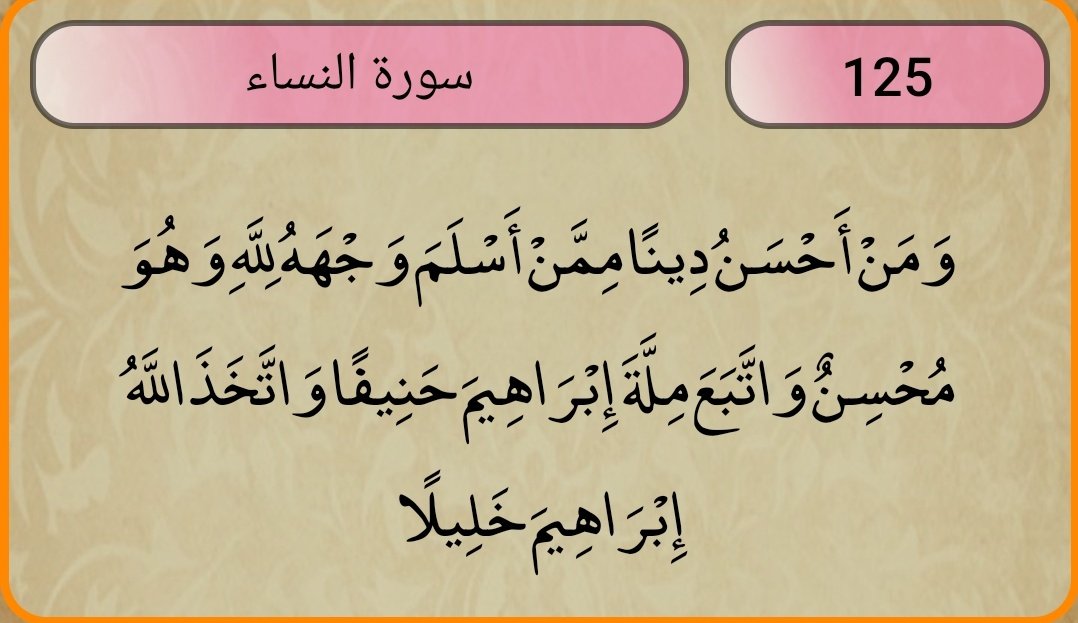 سورة النساء
125
وَمَنْ أَحْسَنُ دِينًا مِمَّنْ أَسْلَمَ وَجْهَهُ لِلَّهِ وَهُوَ
مُحْسِنٌ وَاتَّبَعَ مِلَّةَ إِبْرَاهِيمَ حَنِيفًا وَاتَّخَذَ اللَّهُ
إِبْرَاهِيمَ خَلِيلًا